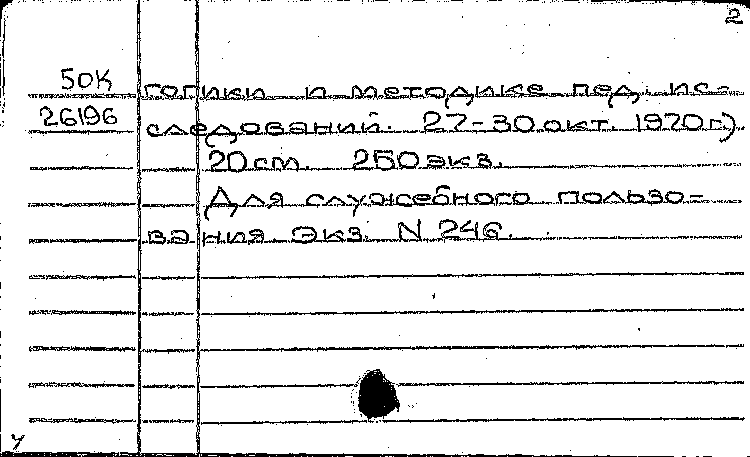 2
50К гогики и методике пед. ис-
26196 следований. 27-30 окт. 1970 г.)
20 см. 250 экз.
Для служебного пользо-
вания Экз. N 246.